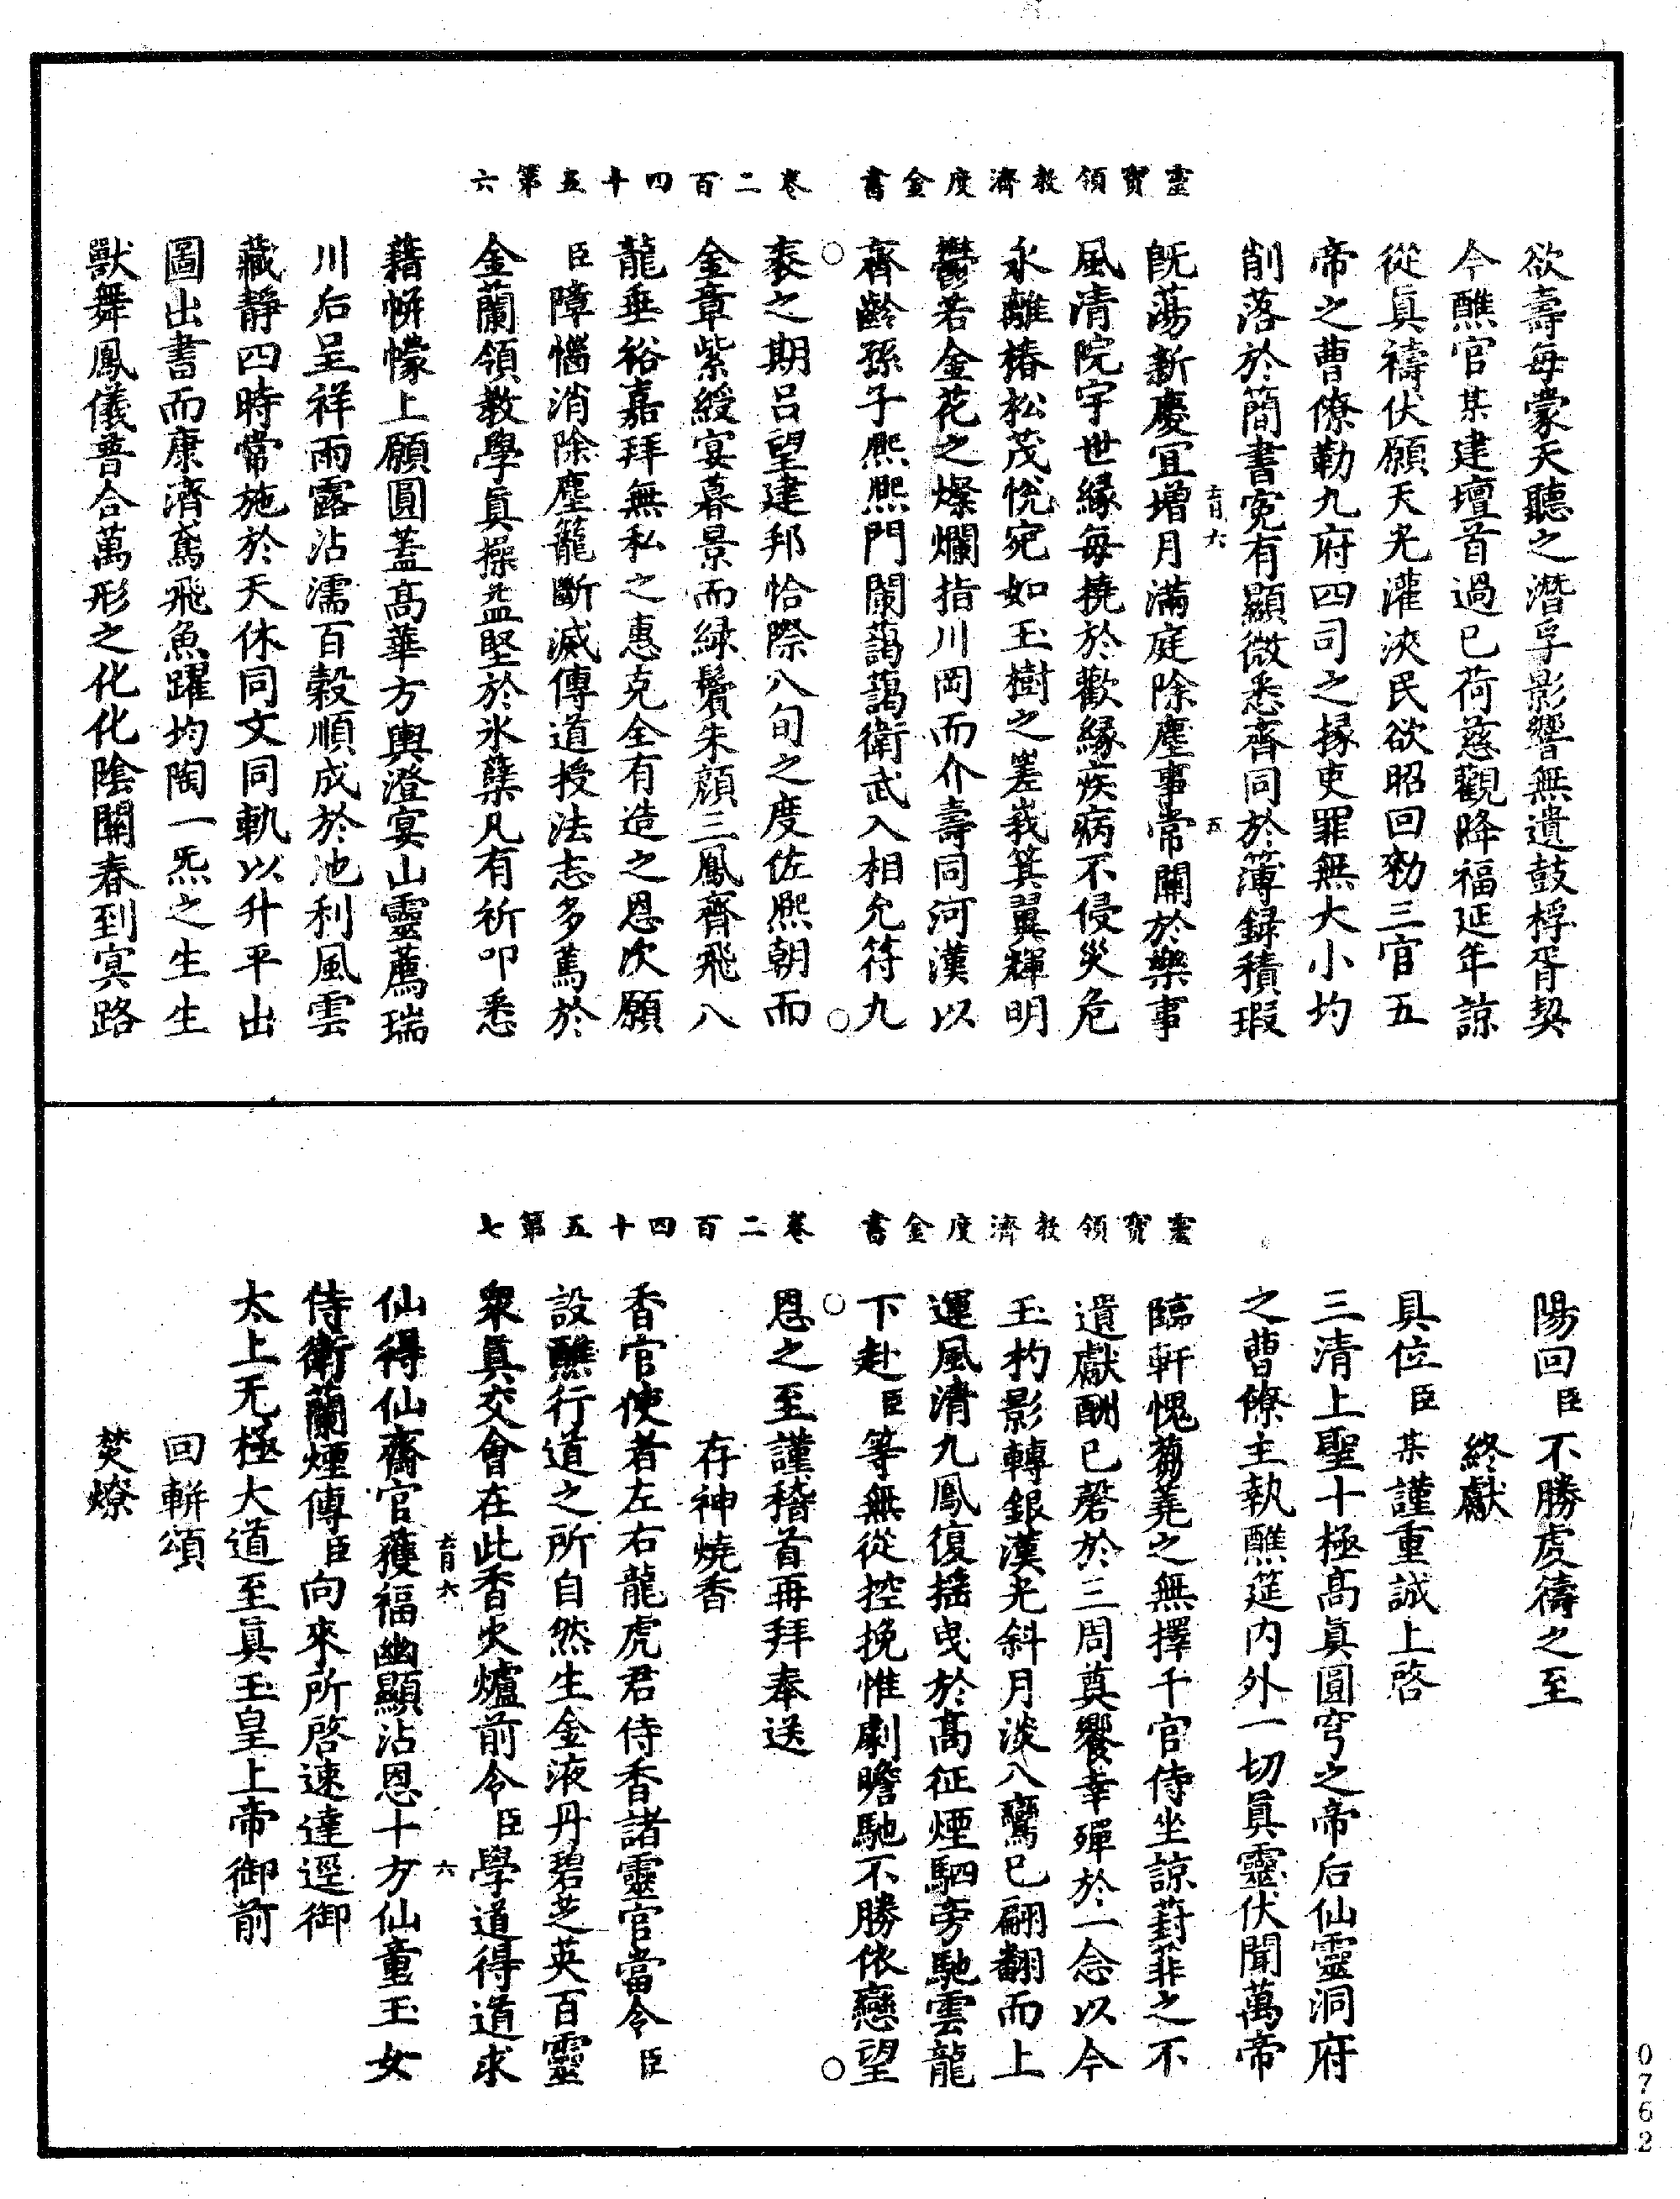 靈寶領教濟度金書　卷二百四十五第六
欲壽每蒙天聽之潛孚影響無遺鼓桴胥契
今醮官某建壇首過已荷慈觀降福延年諒
從眞禱伏願天光灌浹民欲昭回勑三官五
帝之曹僚勒九府四司之掾吏罪無大小均
削落於簡書寃有顯微悉齊同於簿錄積瑕
旣蕩新慶宜增月滿庭除塵事常關於樂事
風清院宇世緣每撓於歡緣疾病不侵災危
永離椿松茂悅宛如玉樹之嵳峩箕翼輝明
鬱若金花之燦爛指川岡而介壽同河漢以
齊齡孫子熈熈門闌藹藹衛武入相允符九
袠之期呂望建邦恰際八旬之度佐熈朝而
金章紫綬宴暮景而綠鬢朱顔三鳳齊飛八
龍垂裕嘉拜無私之惠克全有造之恩次願
臣障惱消除塵籠斷滅傳道授法志多篤於
金蘭領教學眞操益堅於氷蘖凡有祈叩悉
藉帡幪上願圓蓋髙華方輿澄宴山靈薦瑞
川后呈祥雨露沾濡百穀順成於池利風雲
藏靜四時常施於天休同文同軌以升平出
圖出書而康濟鳶飛魚躍均陶一炁之生生
獸舞鳳儀普合萬形之化化陰關春到寘路
靈寶領教濟度金書　卷二百四十五第七
陽回臣不勝虔禱之至
終獻
具位臣某謹重誠上啓
三清上聖十極髙眞圓穹之帝后仙靈洞府
之曹僚主執醮筵内外一切眞靈伏聞萬帝
臨軒愧芻蕘之無擇千官侍坐諒葑菲之不
遺獻酬已罄於三周奠饗幸殫於一念以今
玉杓影轉銀漢光斜月淡八鸞已翩翻而上
運風清九鳳復揺曳於髙征煙駟旁馳雲龍
下赴臣等無從控挽惟劇瞻馳不勝依戀望
恩之至謹稽首再拜奉送
存神燒香
香官使者左右龍虎君侍香諸靈官當令臣
設醮行道之所自然生金液丹碧芝英百靈
衆眞交會在此香火爐前令臣學道得道求
仙得仙齋官獲福幽顯沾恩十方仙童玉女
侍衛蘭煙傳臣向來所啓速達逕御
太上无極大道至眞玉皇上帝御前
回輧頌
焚燎
0762